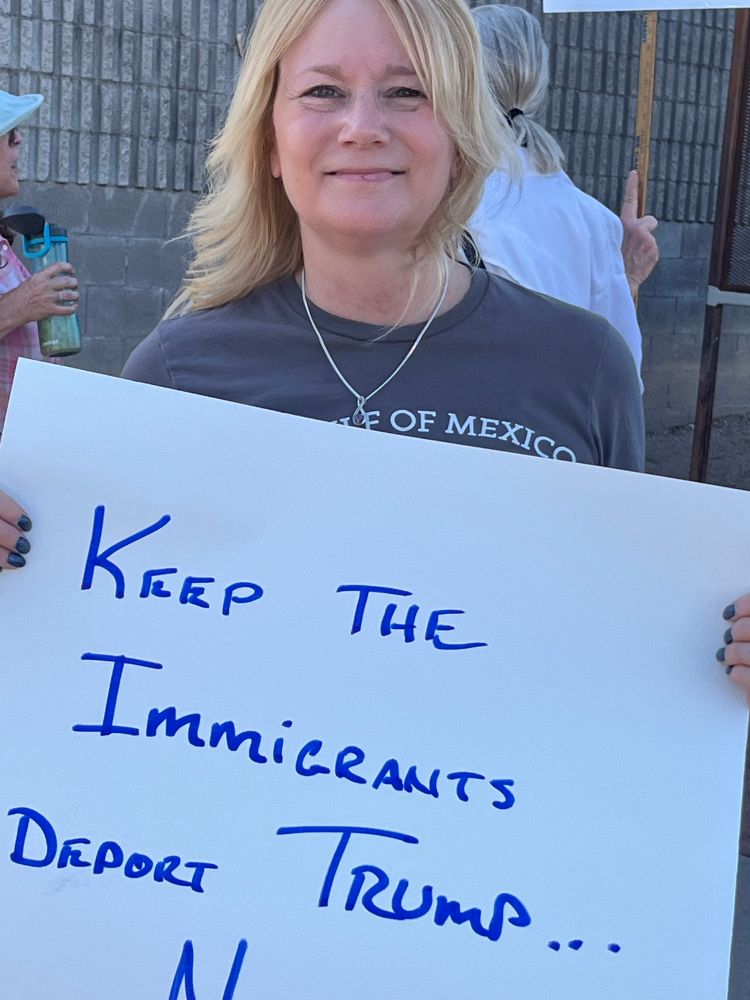 OF MEXICO
KEEP THE
IMMIGRANTS
DEPORT TRUMP...